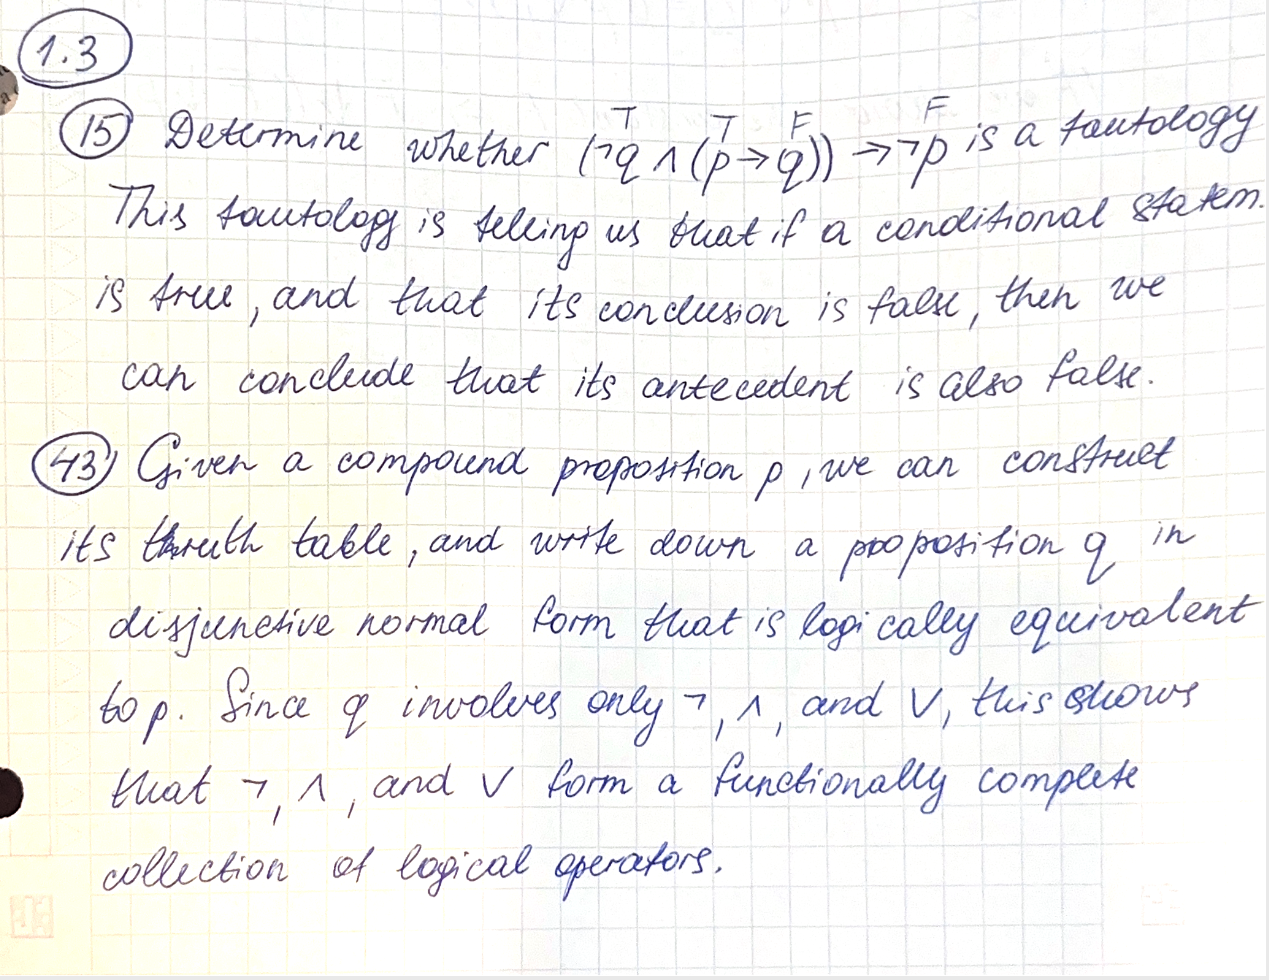 1.3
T T F F
15 Determine whether (¬q ∧ (p → q)) → ¬p is a tautology
This tautology is telling us that if a conditional statem.
is true, and that its conclusion is false, then we
can conclude that its antecedent is also false.
43 Given a compound proposition p, we can construct
its thruth table, and write down a proposition q in
disjunctive normal form that is logically equivalent
to p. Since q involves only ¬, ∧, and ∨, this shows
that ¬, ∧, and ∨ form a functionally complete
collection of logical operators.